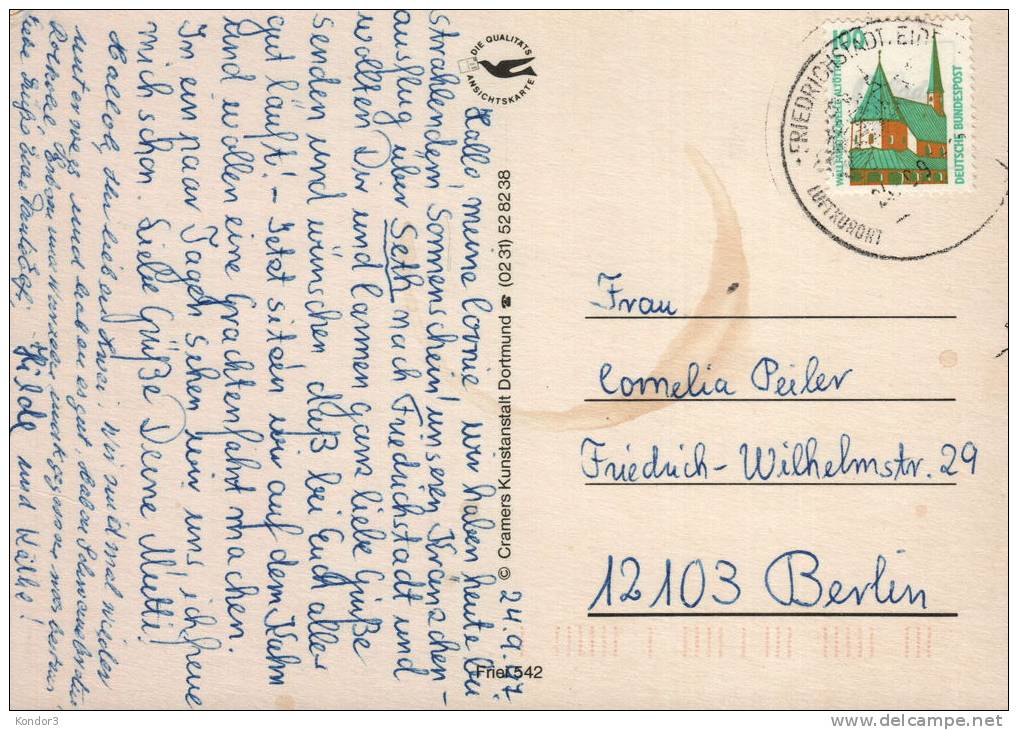 24.9.97
Hallo, meine Connie wir haben heute bei
strahlendem Sonnenschein unseren Kranzchen-
ausflug über Seth nach Friedrichstadt und
wollten Dir und armen ganz liebe Grüße
senden und wünschen daß bei Euch alles
gut läuft! - Jetzt sitzen wir auf dem Kahn
und wollen eine Grachtenfahrt machen.
In ein paar Tagen sehen wir uns, ich freue
mich schon. Liebe Grüße Deine Mutti!
Hallo, ihr lieben Zwei. Wir sind mal wieder
unterwegs und haben es gut, haben
Rotkohl,
Liebe Grüße
Hilde und Käthe!
DIE QUALITÄTS
ANSICHTSKARTE
© Cramers Kunstanstalt Dortmund ☎ (02 31) 52 82 38
Friet 542
100
DEUTSCHE BUNDESPOST
FRIEDRICHSTADT, EIDER
LUFTKURORT
Frau
Cornelia Peiler
Friedrich-Wilhelmstr. 29
12103 Berlin
Kondor3
www.delcampe.net